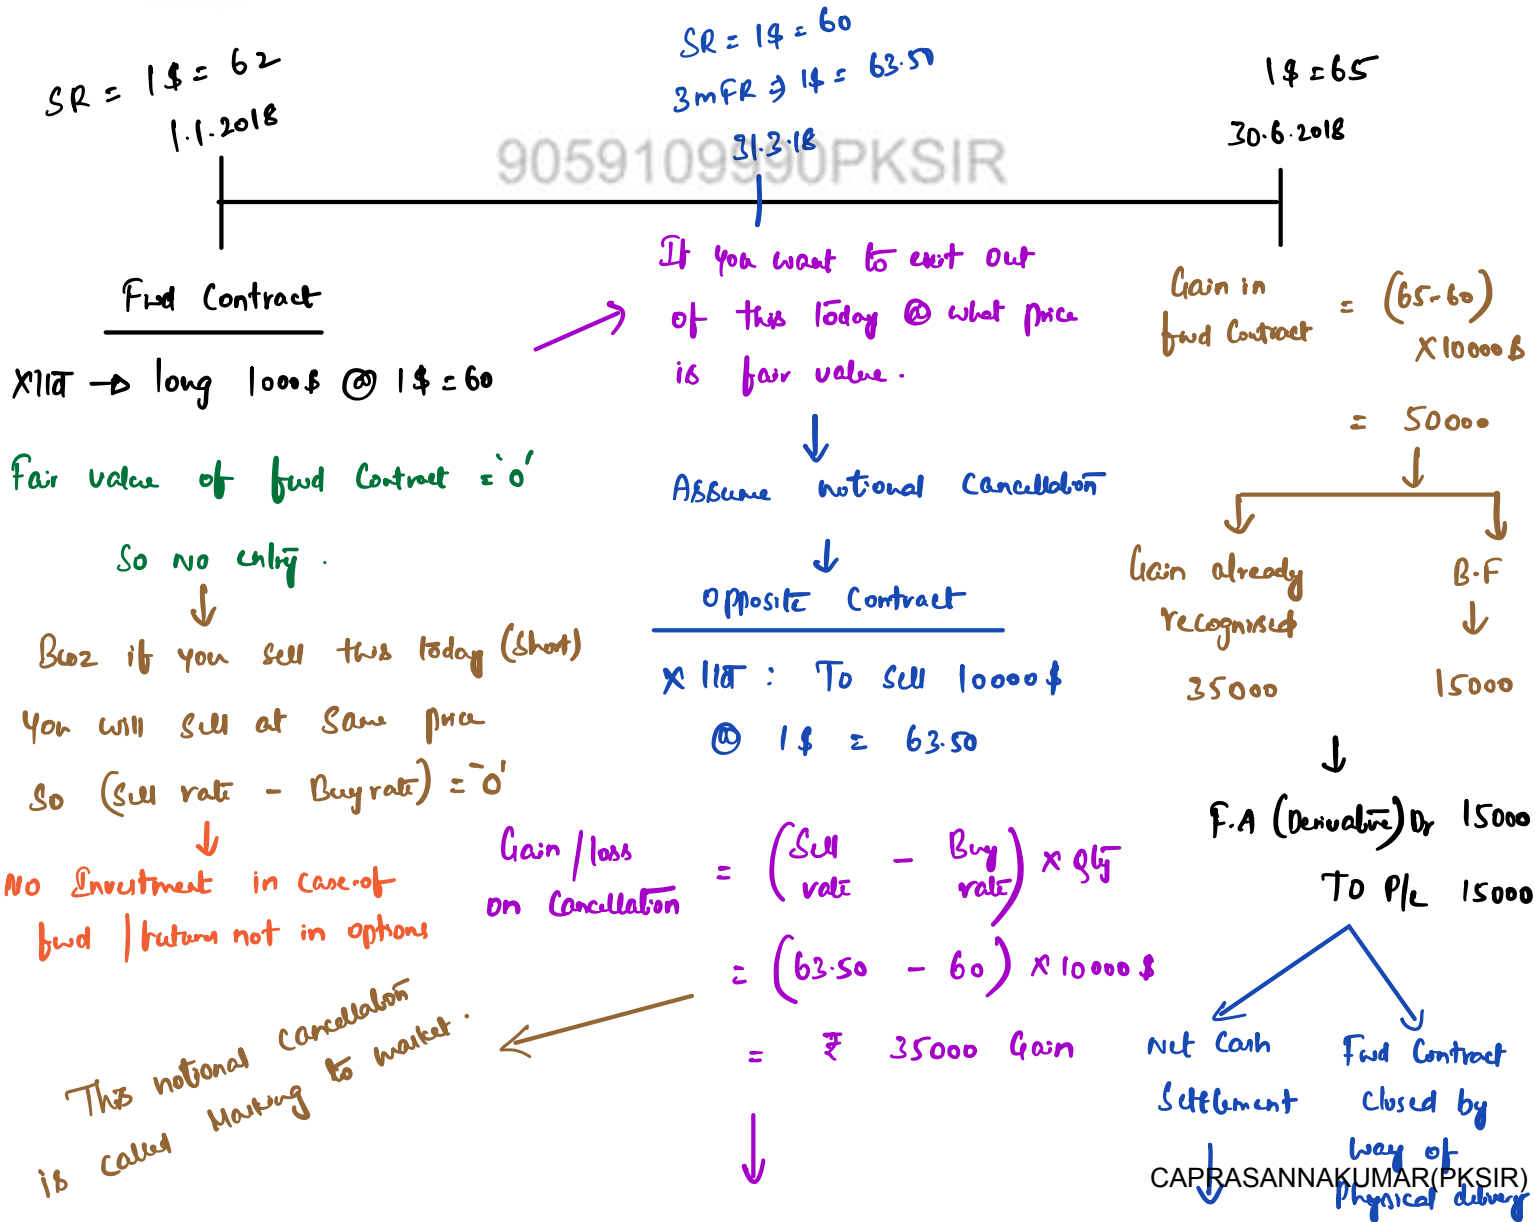 SR = 1$ = 62
1.1.2018
SR = 1$ = 60
3mFR ⇒ 1$ = 63.50
31.3.18
1$ = 65
30.6.2018
9059109990PKSIR
Fwd Contract
X ltd → long 1000$ @ 1$ = 60
Fair value of fwd Contract = '0'
So No entry.
Bcoz if you sell this today (Short)
You will sell at Same price
So (Sell rate - Buy rate) = '0'
No Investment in case of
fwd / future not in options
This notional cancellation
is called Marking to market.
If you want to exit out
of this Today @ what price
is fair value.
Assume notional Cancellation
Opposite Contract
X ltd : To Sell 10000$
@ 1$ = 63.50
Gain / loss
on Cancellation
= (Sell rate - Buy rate) X Qty
= (63.50 - 60) X 10000$
= ₹ 35000 Gain
Gain in
fwd Contract
= (65-60)
X 10000$
= 50000
Gain already
recognised
35000
B.F
15000
F.A (Derivative) Dr 15000
TO P/L 15000
Net Cash
Settlement
Fwd Contract
closed by
way of
Physical delivery
CAPRASANNAKUMAR(PKSIR)